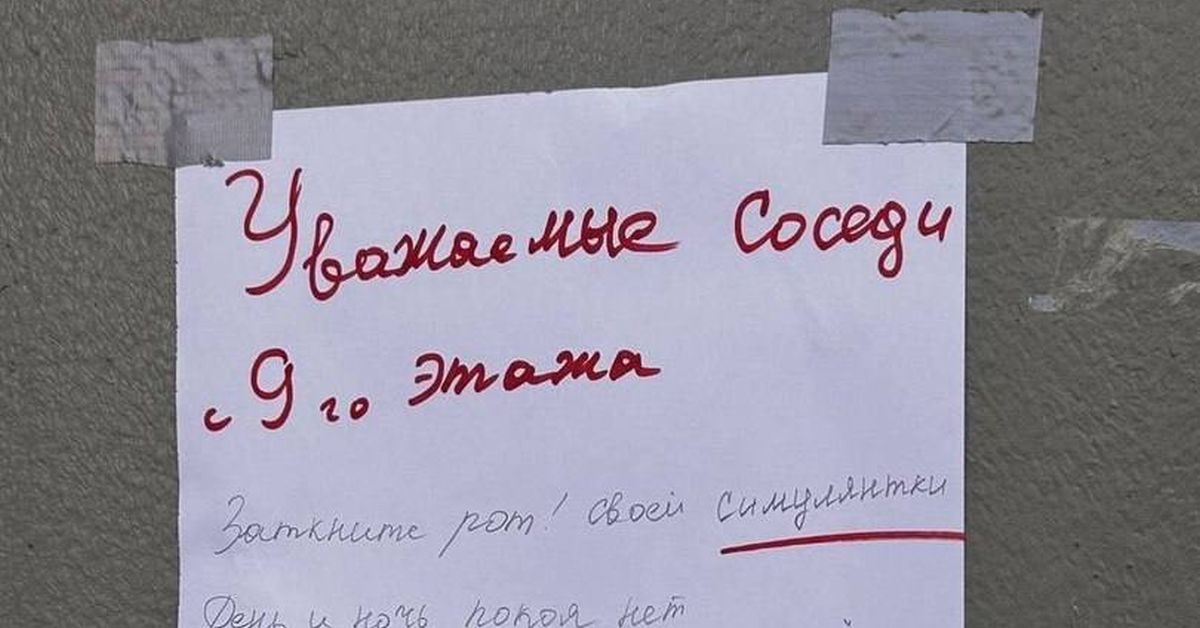 Уважаемые Соседи
с 9 го этажа
Заткните рот! своей симулянтки
День и ночь покоя нет